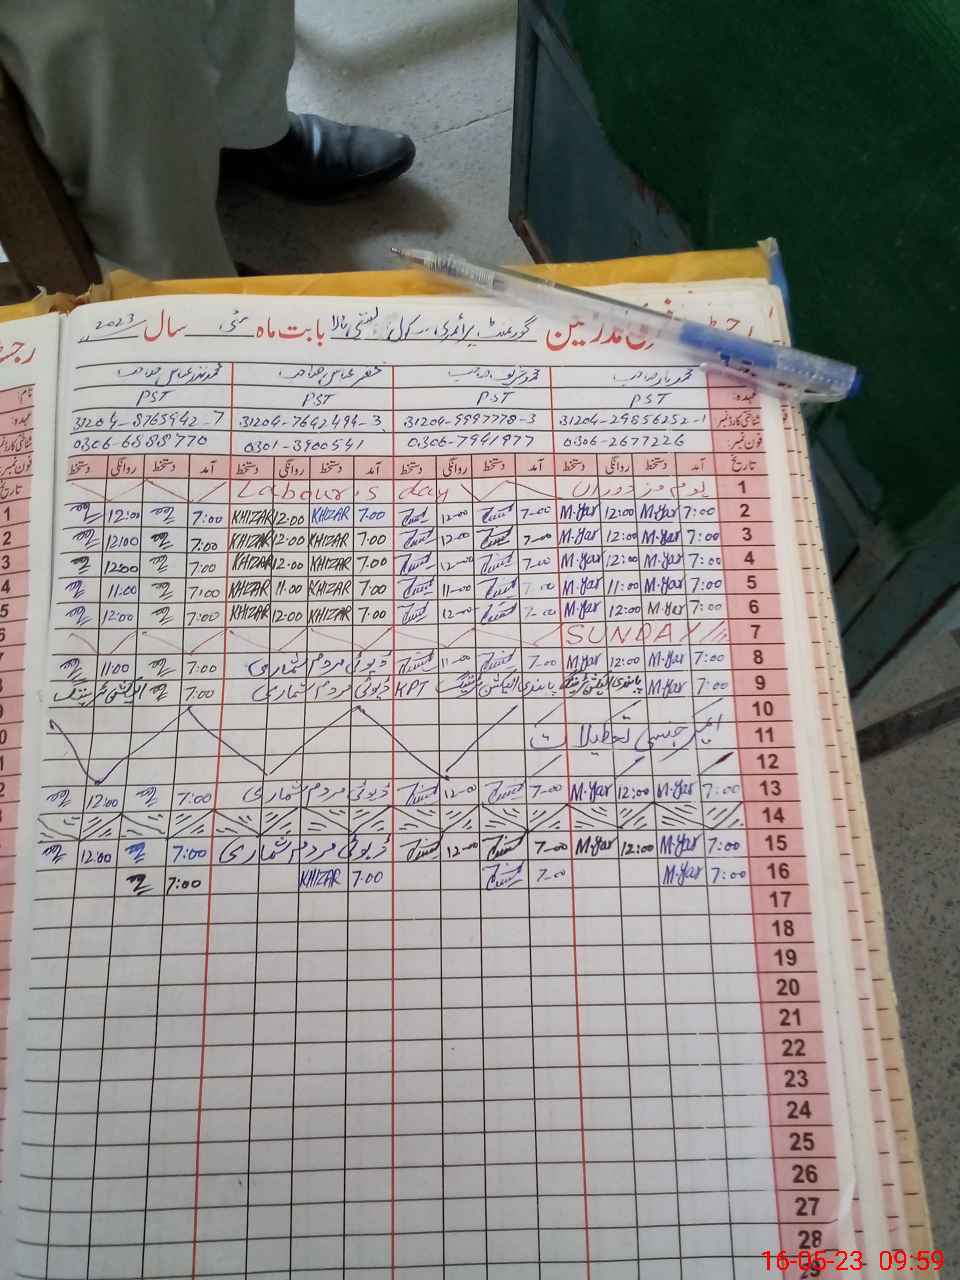 مدرسین گورنمنٹ پرائمری سکول بابت ماہ مئی سال 2023
محمد یار صاحب محمد شریف صاحب خضر عباس صاحب
عہدہ PST PST PST PST
شناختی کارڈ نمبر 31204-29856252-1 31204-9997778-3 31204-7642494-3 31204-8765942-7
فون نمبر: 0306-2677226 0306-7941977 0301-3900541 0306-6888770
تاریخ آمد دستخط روانگی دستخط آمد دستخط روانگی دستخط آمد دستخط روانگی دستخط آمد دستخط روانگی دستخط
1 Labour,s day
2 7:00 M.Yar 12:00 M.Yar 7-00 12-00 7.00 KHIZAR 12.00 KHIZAR 7:00 12:00
3 7:00 M.Yar 12:00 M.Yar 7-00 12-00 7.00 KHIZAR 12.00 KHIZAR 7:00 12:00
4 7:00 M.Yar 12:00 M.Yar 7-00 12-00 7.00 KHIZAR 12.00 KHIZAR 7:00 12:00
5 7:00 M.Yar 11:00 M.Yar 7-00 11-00 7.00 KHIZAR 11.00 KHIZAR 7:00 11:00
6 7:00 M.Yar 12:00 M.Yar 7-00 12-00 7.00 KHIZAR 12.00 KHIZAR 7:00 12:00
7 SUNDAY
8 7:00 M.Yar 12:00 M.Yar 7-00 11-00 ڈیوٹی مردم شماری 7:00 11:00
9 7:00 M.Yar KPT ڈیوٹی مردم شماری 7:00
10
11 ایمرجنسی تعطیلات
12
13 7:00 M.Yar 12:00 M.Yar 7-00 12-00 ڈیوٹی مردم شماری 7:00 12:00
14
15 7:00 M.Yar 12:00 M.Yar 7-00 12-00 ڈیوٹی مردم شماری 7:00 12:00
16 7:00 M.Yar 7-00 7.00 KHIZAR 7:00
17
18
19
20
21
22
23
24
25
26
27
28
29
16-05-23 09:59